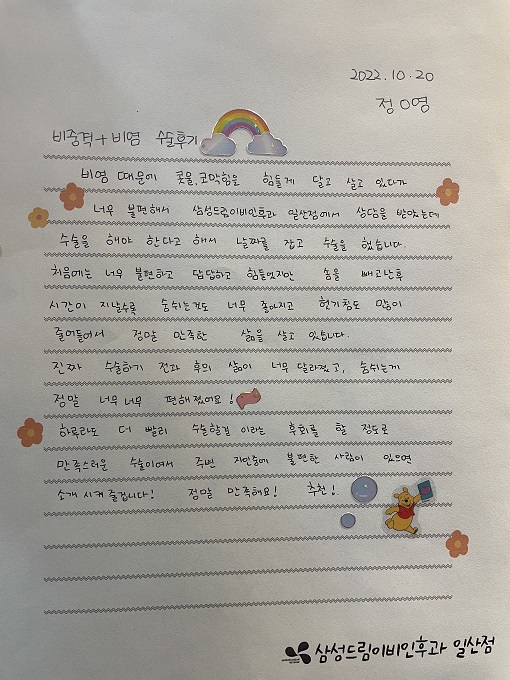 2022.10.20
정O영
비중격+비염 수술후기
비염 때문에 콧물,코막힘을 힘들게 달고 살고 있다가
너무 불편해서 삼성드림이비인후과 일산점에서 상담을 받았는데
수술을 해야 한다고 해서 날짜를 잡고 수술을 했습니다.
처음에는 너무 불편하고 답답하고 힘들었지만 솜을 빼고난후
시간이 지날수록 숨쉬는것도 너무 좋아지고 헌기침도 많이
줄어들어서 정말 만족한 삶을 살고 있습니다.
진짜 수술하기 전과 후의 삶이 너무 달라졌고, 숨쉬는게
정말 너무너무 편해졌어요!
하루라도 더 빨리 수술할걸 이라는 후회를 할 정도로
만족스러운 수술이여서 주변 지인중에 불편한 사람이 있으면
소개 시켜 줄겁니다! 정말 만족해요! 추천!
삼성드림이비인후과 일산점